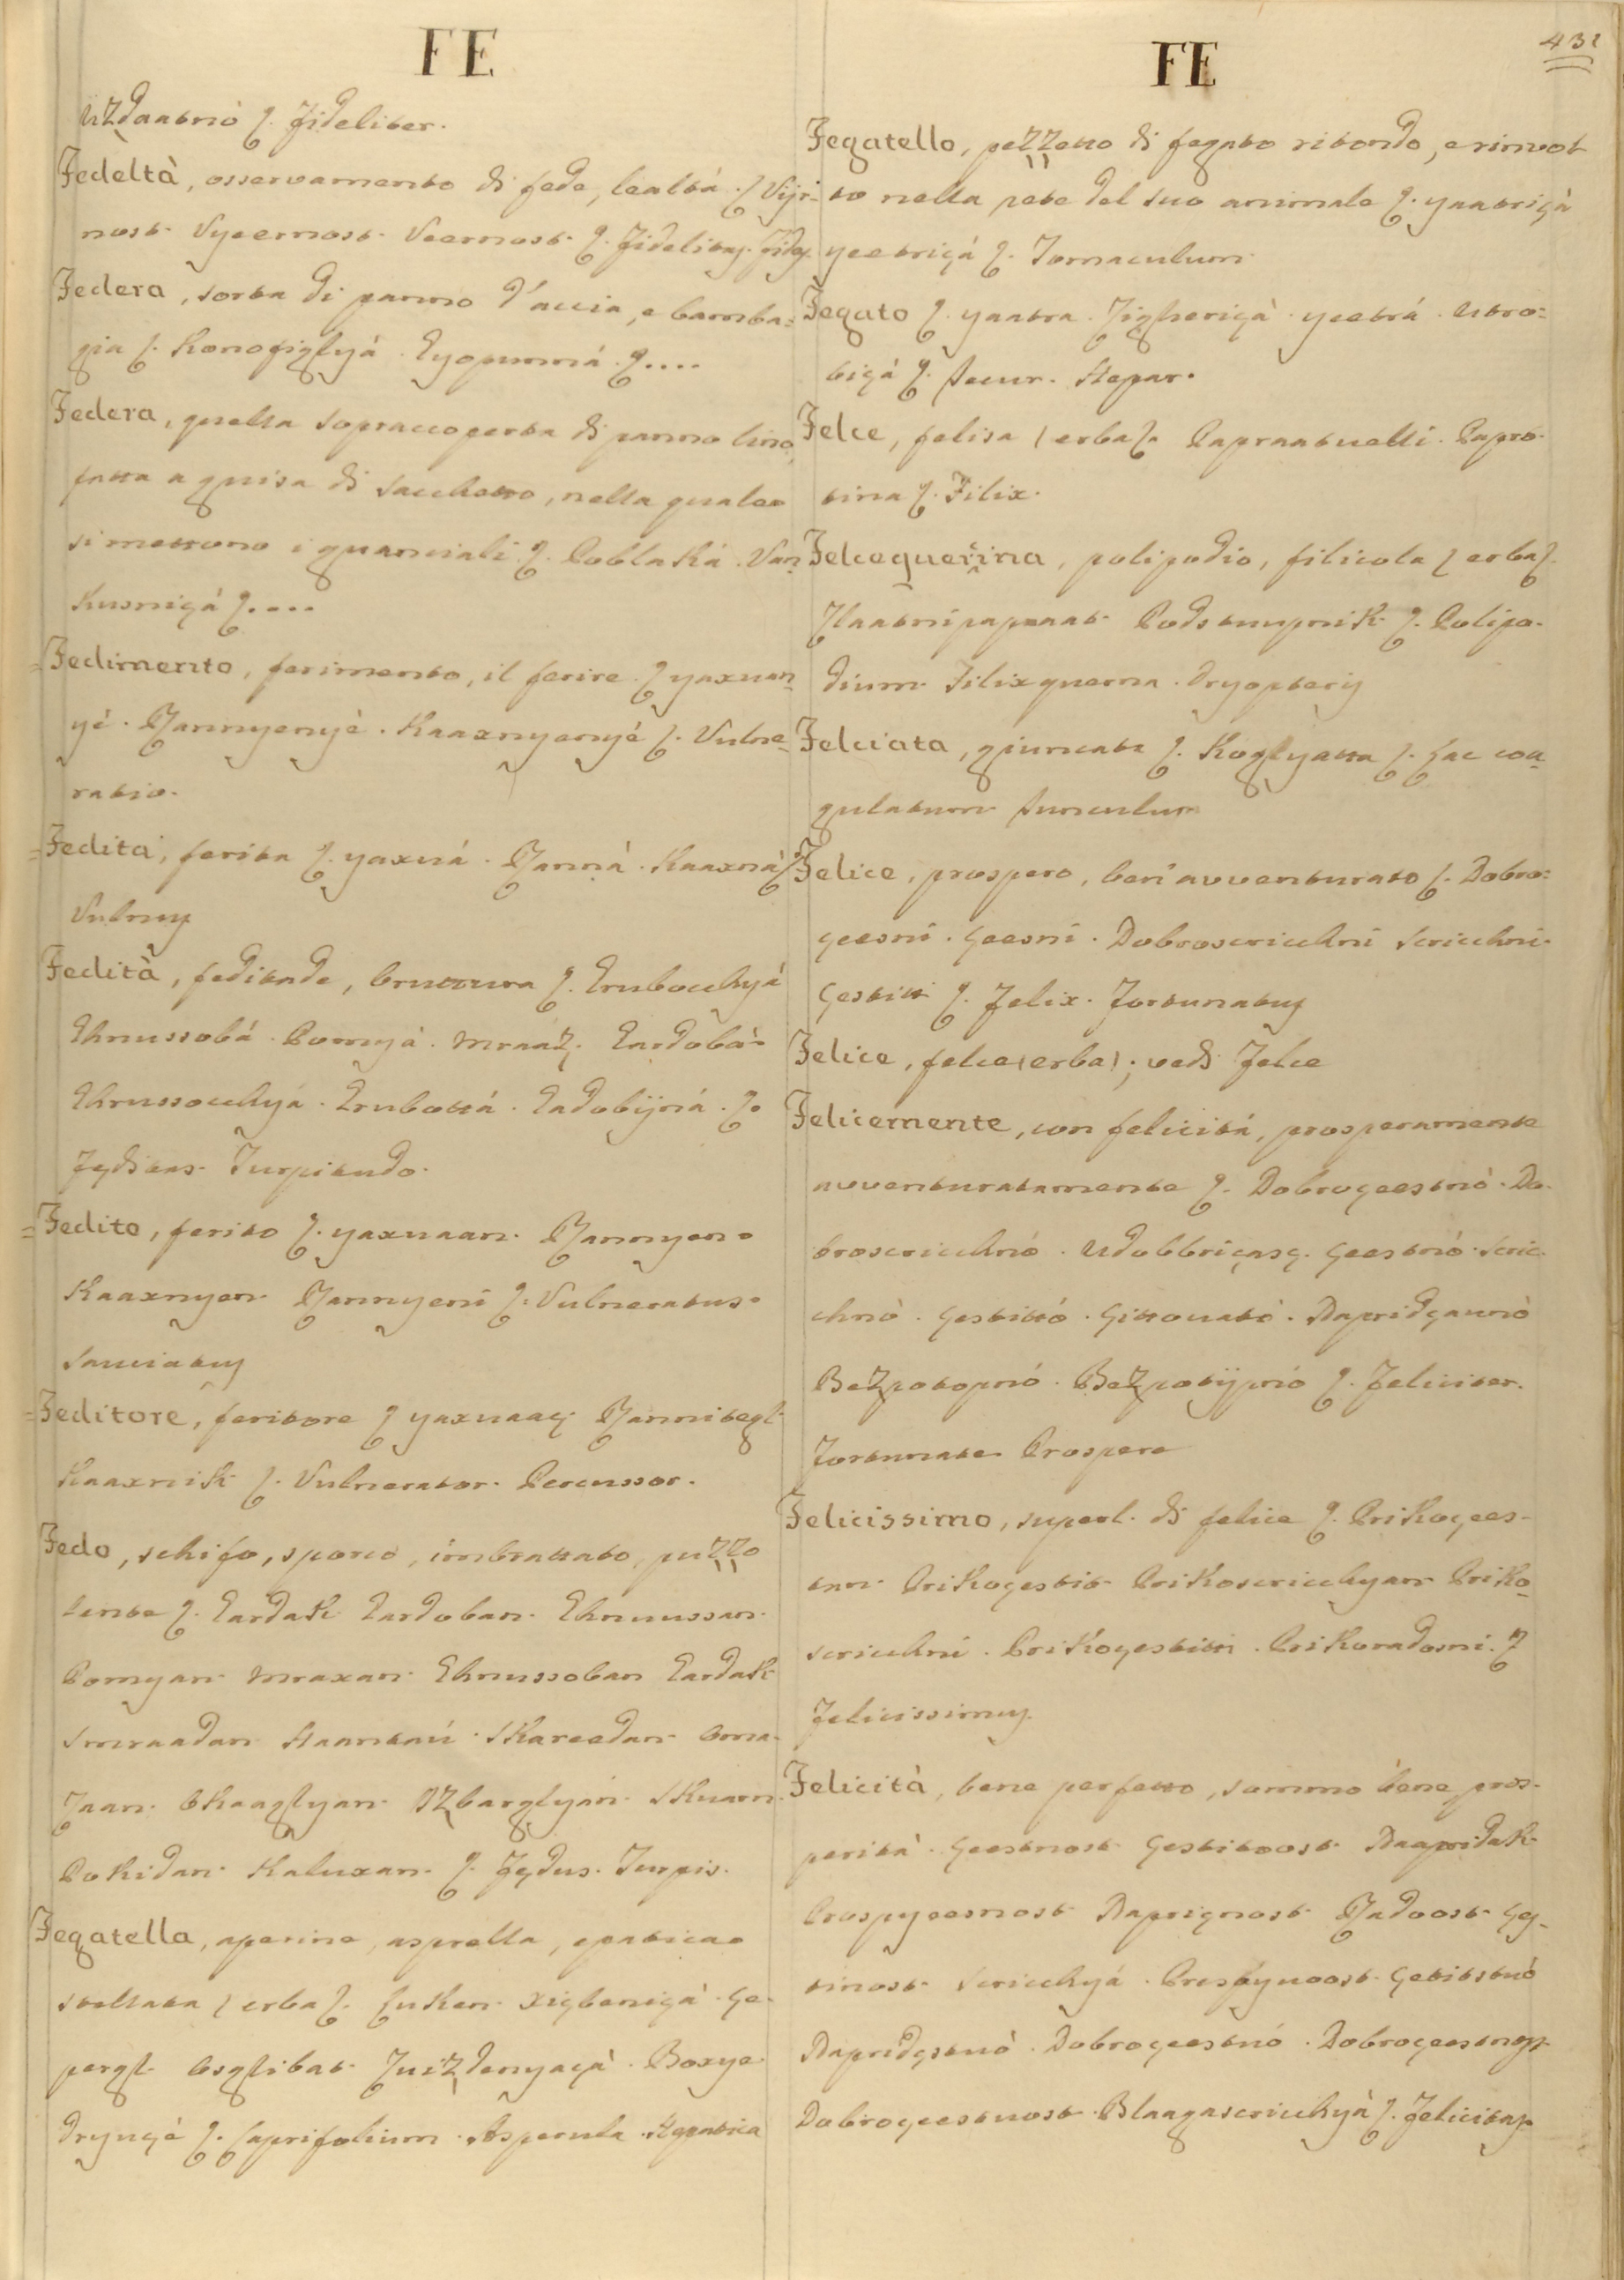 FE
uzdaatnò ſ. Fideliter.
Fedeltà, osservamento di fede, lealtá. ſ Viji-
nost. Vyeernost. Veernost. ſ. Fidelitas. Fides.
Federa, sorta di panno d'accia, e bamba-
gia ſ. Konofigljá. Eyopunná. ſ....
Federa, quella sopraccoperta di panno lino,
fatta a guisa di sacchetto, nella quale
si mettono i guanciali. ſ. Poblaká. Van-
kusniçá ſ....
=Fedimento, ferimento, il ferire. ſ yaxuan-
yé. Rannyenyé. Kaaxnyenyé ſ. Vulne-
ratio.
=Fedita, ferita ſ. yaxuá. Ranná. Kaaxnà ſ
Vulnus
Fedità, feditade, bruttura ſ. Grubochyá
Ghnussobá. Pomyá. Mraaz. Gardobà.
Ghnussochyá. Grubottá. Gadobijná. ſ.
Fęditas. Turpitudo.
=Fedito, ferito ſ. yaxuaan. Rannyen.
Kaaxnyen. Rannyeni ſ. Vulneratus.
Sauciatus
=Feditore, feritore ſ yaxuaaç. Rannitegl.
Kaaxnik ſ. Vulnerator. Percussor.
Fedo, schifo, sporco, imbrattato, puzzo
lente ſ. Gardak Gardoban. Ghnuussan.
Pomyan. Mraxan. Ghnussoban Gardak
Smraadan. Staantaní. Skareedan. Oma-
zaan. Okaagljan. Izbargljan. Skuarn.
Pokidan. Kaluxan. ſ. Fędus. Turpis.
Fegatella, aperine, asprella, epatica
stellata (erba ſ. Luken. xigbeniçà. Ge-
pergl. Osglibat. Zuizdenyaçà. Boxye
dryuçé ſ. Caprifolium. Asperula. Hepatica
FE
431
Fegatello, pezzetto di fegato ritondo, e rinvol
to nella rete del suo animale ſ. yaatriçà
yeetriçá ſ. Tomaculum.
Fegato ſ. yaatra. Zighericà. yeetrá. utro-
biçá ſ. Jecur. Hepar.
Felce, felisa (erba ſ. Papraatuelli. Papro-
tina ſ. Filix.
Felcequerina, polipodio, filicola (erba ſ.
Zlaatnipapraat. Podstuupnik ſ. Polipo-
dium. Filixquerna. Dryopteris
Felciata, giuncata ſ. Kogljatta ſ. Lac coa-
gulatum. Junculum
Felice, prospero, ben'avventurato ſ. Dobro-
çeesní. Çeesní. Dobroscricchní Scricchni.
Çestitti ſ. Felix. Fortunatus
Felice, felce (erba); vedi Felce
Felicemente, con felicitá, prosperamente
avventuratamente ſ. Dobroçeestnò. Do-
broscricchnó. Udobbriçasç. Çeestnó. Scric-
chnò. Çestittó. Çittouatò. Napridçaunò
Bezpotopnó. Bezpotijpnó ſ. Feliciter.
Fortunate. Prospere
Felicissimo, superl. di felice ſ. Prikoçees-
tan. Prikoçestit. Prikoscricchyan. Priko-
scricchní. Prikoçestitti. Prikoradosni. ſ
Felicissimus.
Felicità, bene perfetto, sommo bene, pros-
perità. Çeestnost. Çestitoost. Naapridak
Prospyeesnost. Naprignost. Radoost. Çes-
tinost. Scricchyá. Prespyuoost. Çetitstuò
Napridçstuò. Dobroçeestuó. Dobroçeestngt
Dobroçeestuost. Blaagascricchyà ſ. Felicitas.